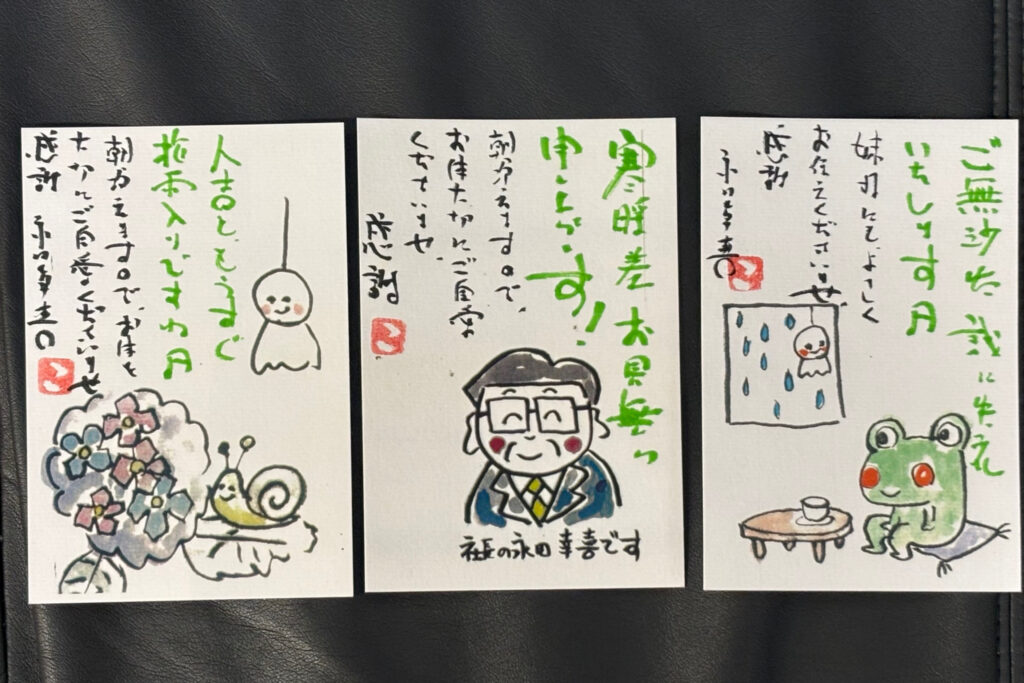 人吉ももうすぐ
梅雨入りですね
お体を
大切にご自愛くださいませ
感謝 永田幸喜
寒暖差 お見舞い
申し上げます!
お体大切にご自愛
くださいませ
感謝
社長の永田幸喜です
ご無沙汰 誠に失礼
いたします
にもよろしく
お伝えくださいませ
感謝
永田幸喜